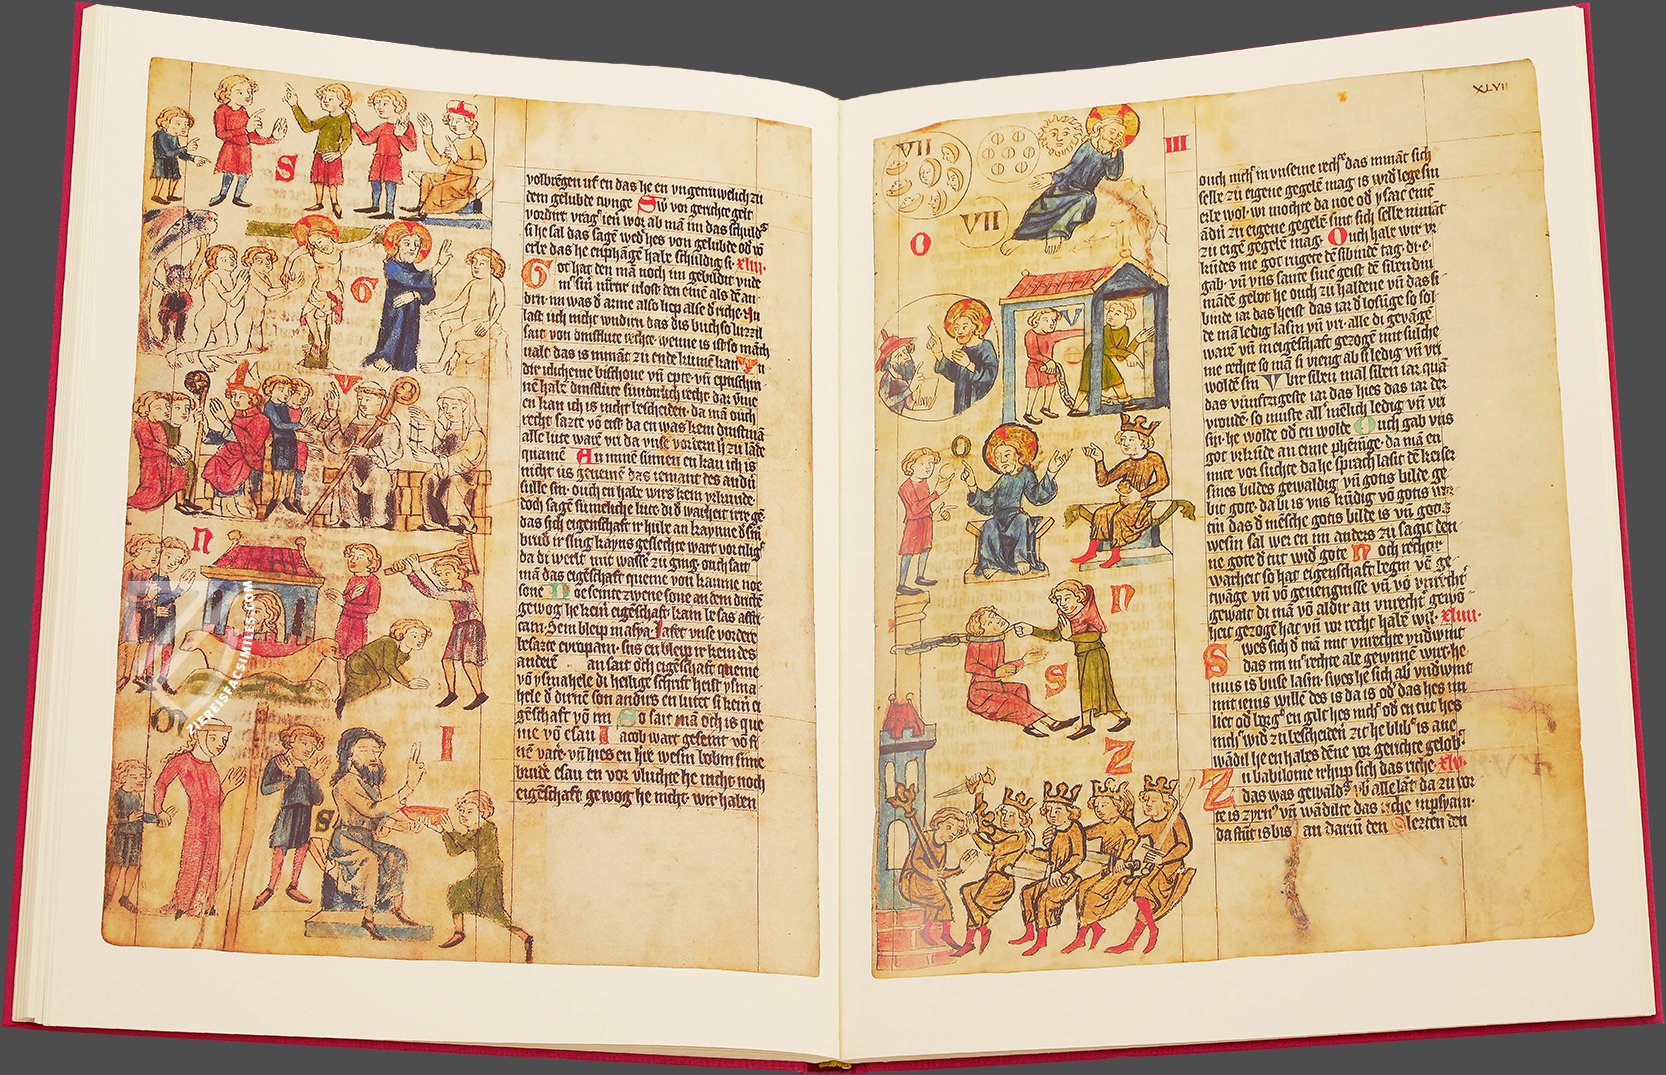 volbrēgen uf en das he en vngetruwelich zu
dem gelubte twnge Sw vor gerichte gelt
vordirt
si he sal das sagē wed hes von gelubde od vō
erbe das he enphāgē habe schuldig si xliij
Got hat den mā noch im gebildit vnde
drin im was d arme also liep alse d riche
last uch nicht wudirn das dis buch so luzzil
sait von dinstlute rechte wenne is ist so māch
uale das is nimāt zu ende kumē kan
ir iclicheme bisschoue vn epte vn eptischin
nē habē dinstlute sundirlich recht dar vme
en kan ich is nicht bescheiden da mā ouch
recht sazte vō erst da en was kein dinstmā
alle lute ware vri da vnse vordern h zu lāde
quamē An minē sinnen en kan ich is
nicht
sulle sin ouch en habe wirs kein vrkunde
doch sagē sumeliche lute di d warheit irre gē
das sich eigenschaft ir hube an kayme d sinē
brud ir slug kayns geslechte wart vortiligt
da di werlt mit wassē zu ging ouch sait
mā das eigēschaft queme von kamme noe
sone Noe seinte zwene sone an dem dritē
gewog he keinē eigēschaft kam besas affri
cam Sem bleip in asya Jafet vnse vordere
besazte europam sus en bleip ir kein des
anderē an sait och eigēschaft queme
vō ysmahele di heilige schrift heist ysma
hele d dirnē son andirs en lutet si kein ei
gēschaft vō im So sait mā och is que
me vō esau Jacob wart gesenit vō si
nē vatē vn hies en hre wesin bobin sine
brude esau en vor vluchte he nicht noch
eigēschaft gewog he nicht wir haben
S
G
V
N
O
I
S
XLVII
III
VII
VII
O
V
O
N
S
Z
ouch nich in vnseme rech das nimāt sich
selbe zu eigene gegebē mag is wid lege sin
erbe wol wi mochte da noe od ysaac einē
ādn zu eigene gegebē sint sich selbe nimāt
zu eigē gegebē mag Ouch habe wir vr
kudes me got rugete dē sibinde tag di e
gab vn yns sante sinē geist dē sibendin
mādē gebot he ouch zu haldene vn das si
binde iar das heist das iar d losuge so sol
de mā ledig lasin vn vri alle di gevāgē
ware vn in eigēschaft gezogē mit sulche
me rechte so mā si vieng ab si ledig vn vri
woldē sin Vbir sibē mal sibēn iar quā
das vumfzigeste iar das hies das iar der
vroude so muste allmēlich ledig vn vri
sin he wolde od en wolde Ouch gab vns
got vrkūde an eime phēnīge da mā en
mite vorsuchte da he sprach lasit dē keiser
sines bildes gewaldig vn gotis bilde ge
bit gote da bi is vns kūdig vō gotis wor
tin das d mēsche gotis bilde is vn gotis
wesin sal wer en im anders zu sagit den
ne gote d tut wid gote Noch rechtir
warheit so hat eigenschaft begin vō ge
twāge vn vō geuengnisse vn vō vnrecht
gewalt di mā vō aldir an vnrecht gewō
heit gezogē hat vn vor recht habē wil xliiii
Swes sich d mā mit vnrechte vndwint
das im mit rechte abe gewunnē wirt he
mus is buse lasin swes he sich ab vndwint
mit ienis wille des is da is od das hes im
lier od borg en gilt hes nich od en tut hes
nich wid zu bescheiden zit he blib is ane
wādil he en habes dēne vor gerichte gelob
Zu babilonie irhup sich das riche xlv
das was gewald ub alle lāt da zu vor
te is zyrus vn wādilte das riche in psyam
da stūt is bis an darium den lezten den
ZIEREISFACSIMILES.COM